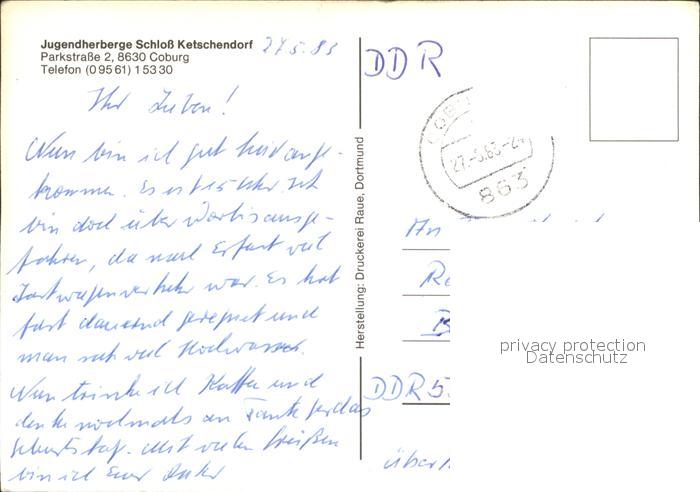 Jugendherberge Schloß Ketschendorf
Parkstraße 2, 8630 Coburg
Telefon (0 95 61) 1 53 30
27.5.83
Ihr Lieben!
Nun bin ich gut hier ange-
kommen. Es ist 15 Uhr. Ich
bin doch über ausge-
fahren, da nach Erfurt viel
Lastwagenverkehr war. Es hat
fast dauernd geregnet und
man sah viel Hochwasser.
Nun trinke ich Kaffee und
denke nochmals an
Geburtstag. Mit vielen Grüßen
bin ich Euer
Herstellung: Druckerei Raue, Dortmund
DDR
27.-5.83-2
863
An
DDR 5
über
privacy protection
Datenschutz